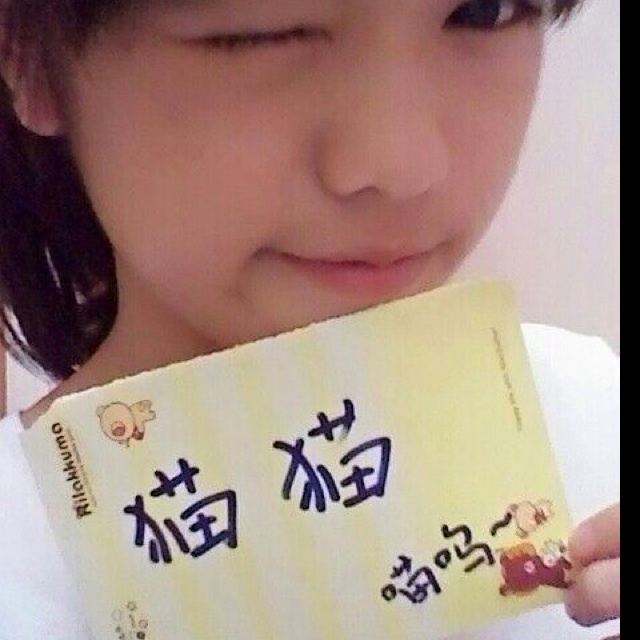 Rilakkuma
猫猫
喵呜~